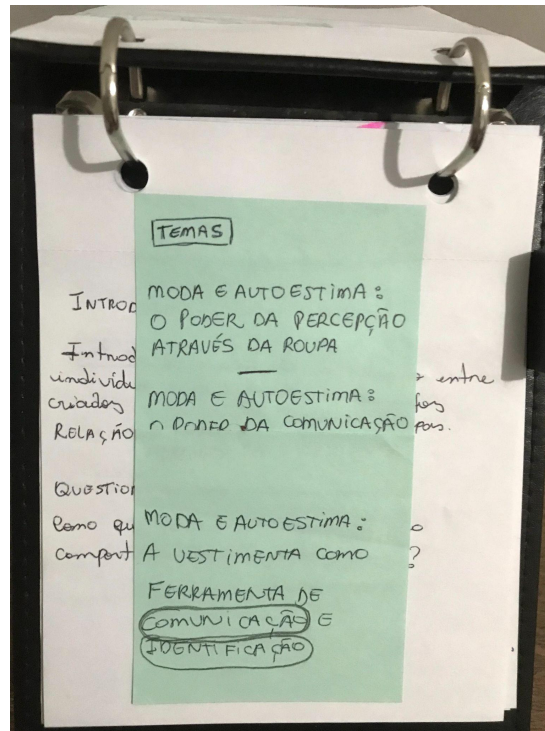 TEMAS
MODA E AUTOESTIMA:
O PODER DA PERCEPÇÃO
ATRAVÉS DA ROUPA
MODA E AUTOESTIMA:
O PODER DA COMUNICAÇÃO
MODA E AUTOESTIMA:
A VESTIMENTA COMO
FERRAMENTA DE
COMUNICAÇÃO E
IDENTIFICAÇÃO
INTROD
Introd
individu entre
criados
RELAÇÃO
QUESTION
Como qu
comport ?